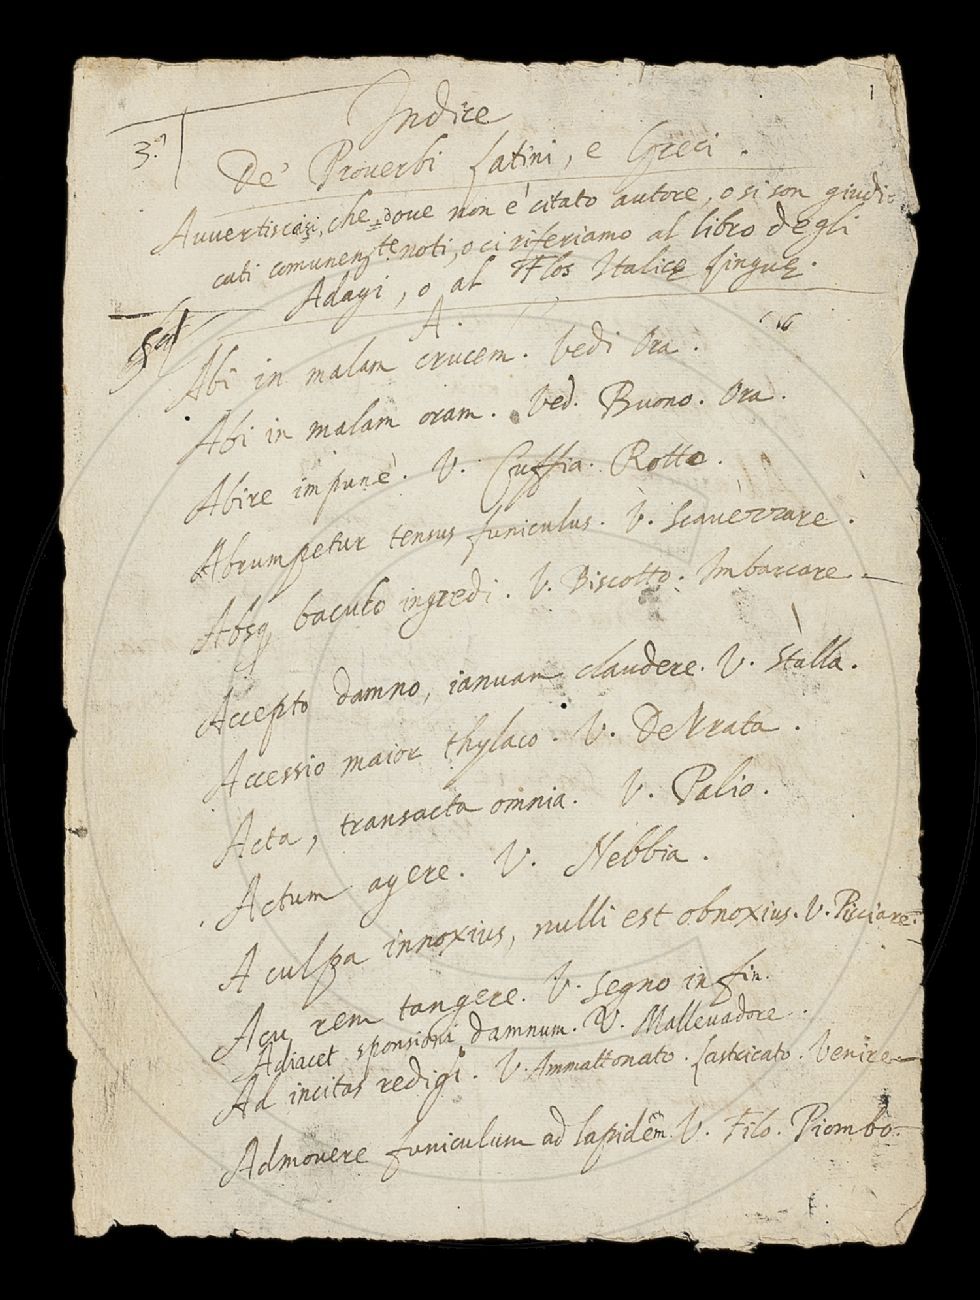 1
Indice
3.º
De' Proverbi Latini, e Greci.
Avvertiscasi, che dove non è citato autore, o si son giudi-
cati comunente noti, o ci riferiamo al libro degli
Adagi, o al Flos Italicę Linguę.
A.
Abi in malam crucem. Vedi Ora.
Abi in malam oram. Ved. Buono. Ora.
Abire impunè. V. Cuffia. Rotto.
Abrumpetur tensus funiculus. V. Scavezzare.
Absq baculo ingredi. V. Biscotto. Imbarcare
Accepto damno, ianuam claudere. V. Stalla.
Accessio maior thylaco. V. Derrata.
Acta, transacta omnia. V. Palio.
Actum agere. V. Nebbia.
A culpa innoxius, nulli est obnoxius. V. Picciare.
Acu rem tangere. V. Segno in fin.
Adiacet sponsioni damnum. V. Mallevadore.
Ad incitas redigi. V. Ammattonato. Lastricato. Venire
Admovere funiculum ad lapidem. V. Filo. Piombo.